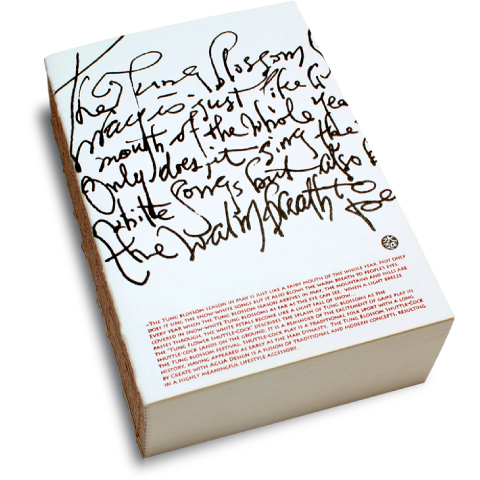 The Tung Blossom
May is just like a
mouth of the whole yea
Only does it sing the
white songs but also b
the warm breath to pe
~The Tung Blossom season in May is just like a fairy mouth of the whole year. Not only
does it sing the snow-white songs but it also blows the warm breath to people's eyes.
Every year when the Tung Blossom season arrives in May, the mountains and hills are
covered in snow-white Tung Blossoms as far as the eye can see. When a light breeze
passes through, the white petals become like a light fall of snow~
The "Tung Flower Shuttlecock" describes the splash of Tung Blossoms as the
shuttle-cock lands on the ground. It is a reminder of the excitement of game play in
the Tung Blossom Festival. Shuttle-cock play is a traditional folk sport with a long
history, having appeared as early as the Han Dynasty. The Tung Blossom Shuttle-cock
by Create with Agua Design is a fusion of traditional and modern concepts, resulting
in a highly meaningful lifestyle accessory.